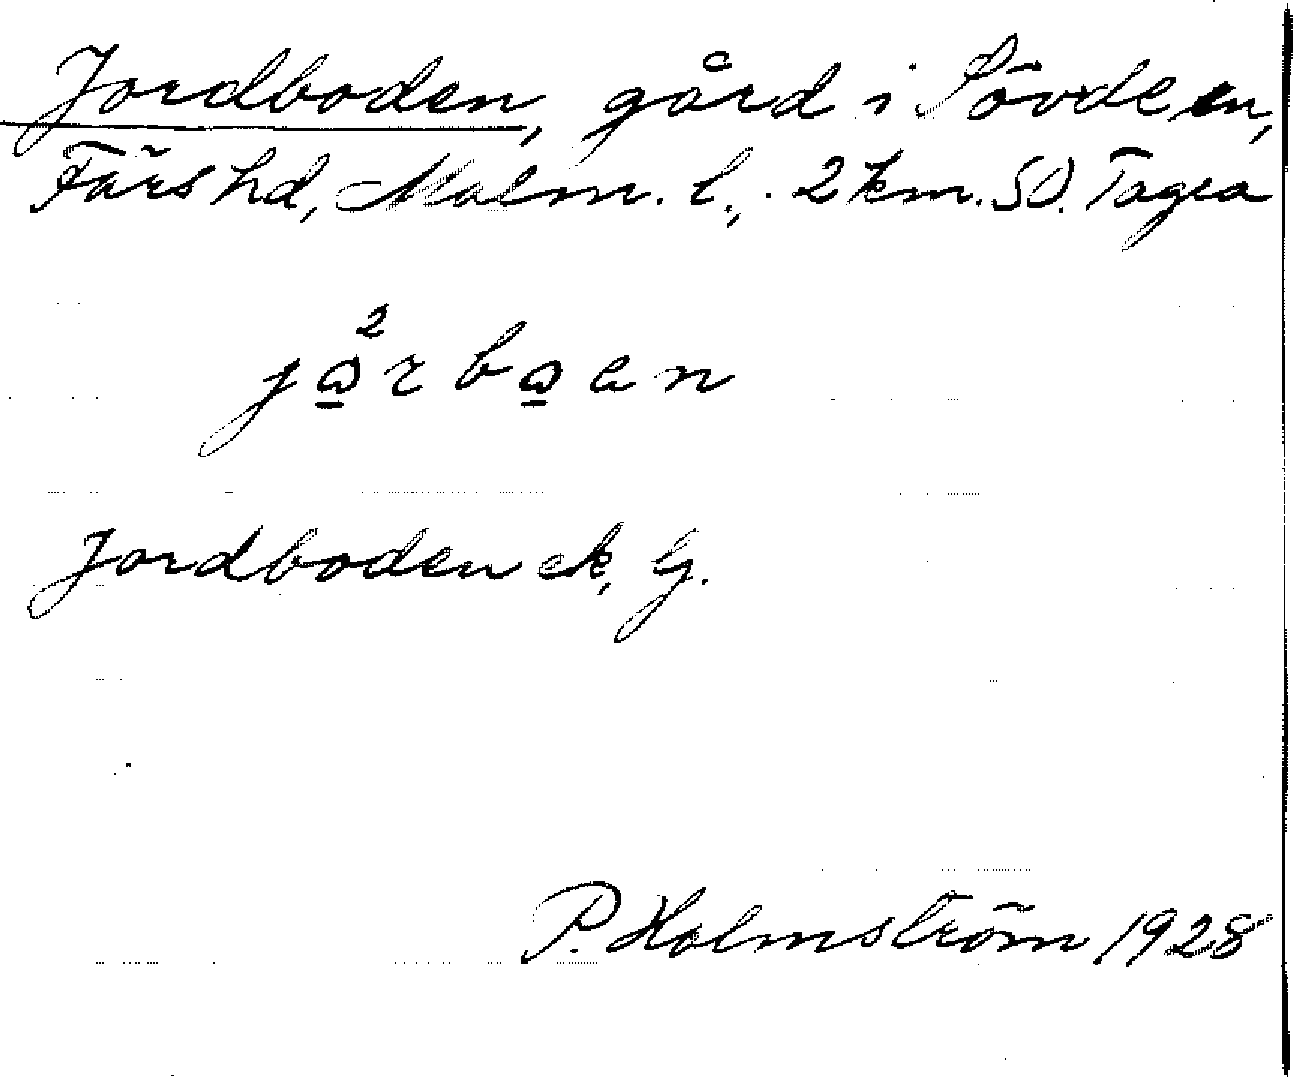 Jordboden, gård i Sövde sn,
Färs hd, Malm. l., 2 km. SO. Tagea
jo̲²rbo̲en
Jordboden ek, G.
P. Holmström 1928